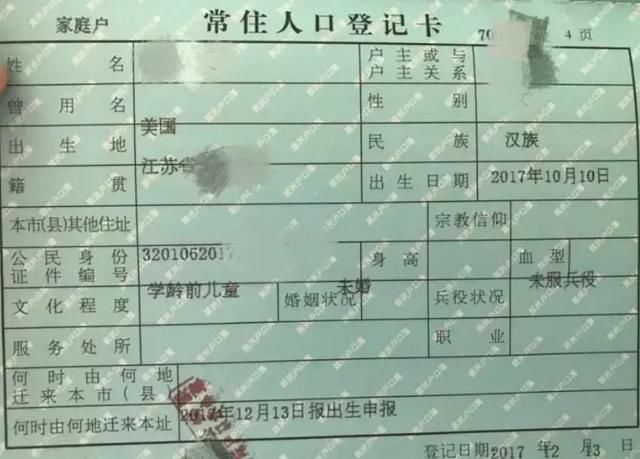 家庭户
常住人口登记卡
4 页
姓名
户主或与户主关系
曾用名
性别
出生地 美国
民族 汉族
籍贯 江苏省
出生日期 2017年10月10日
本市(县)其他住址
宗教信仰
公民身份证件编号 3201062017
身高
血型
文化程度 学龄前儿童
婚姻状况 未婚
兵役状况 未服兵役
服务处所
职业
何时由何地迁来本市(县
何时由何地迁来本址 2017年12月13日报出生申报
登记日期:2017 年 12 月 13 日